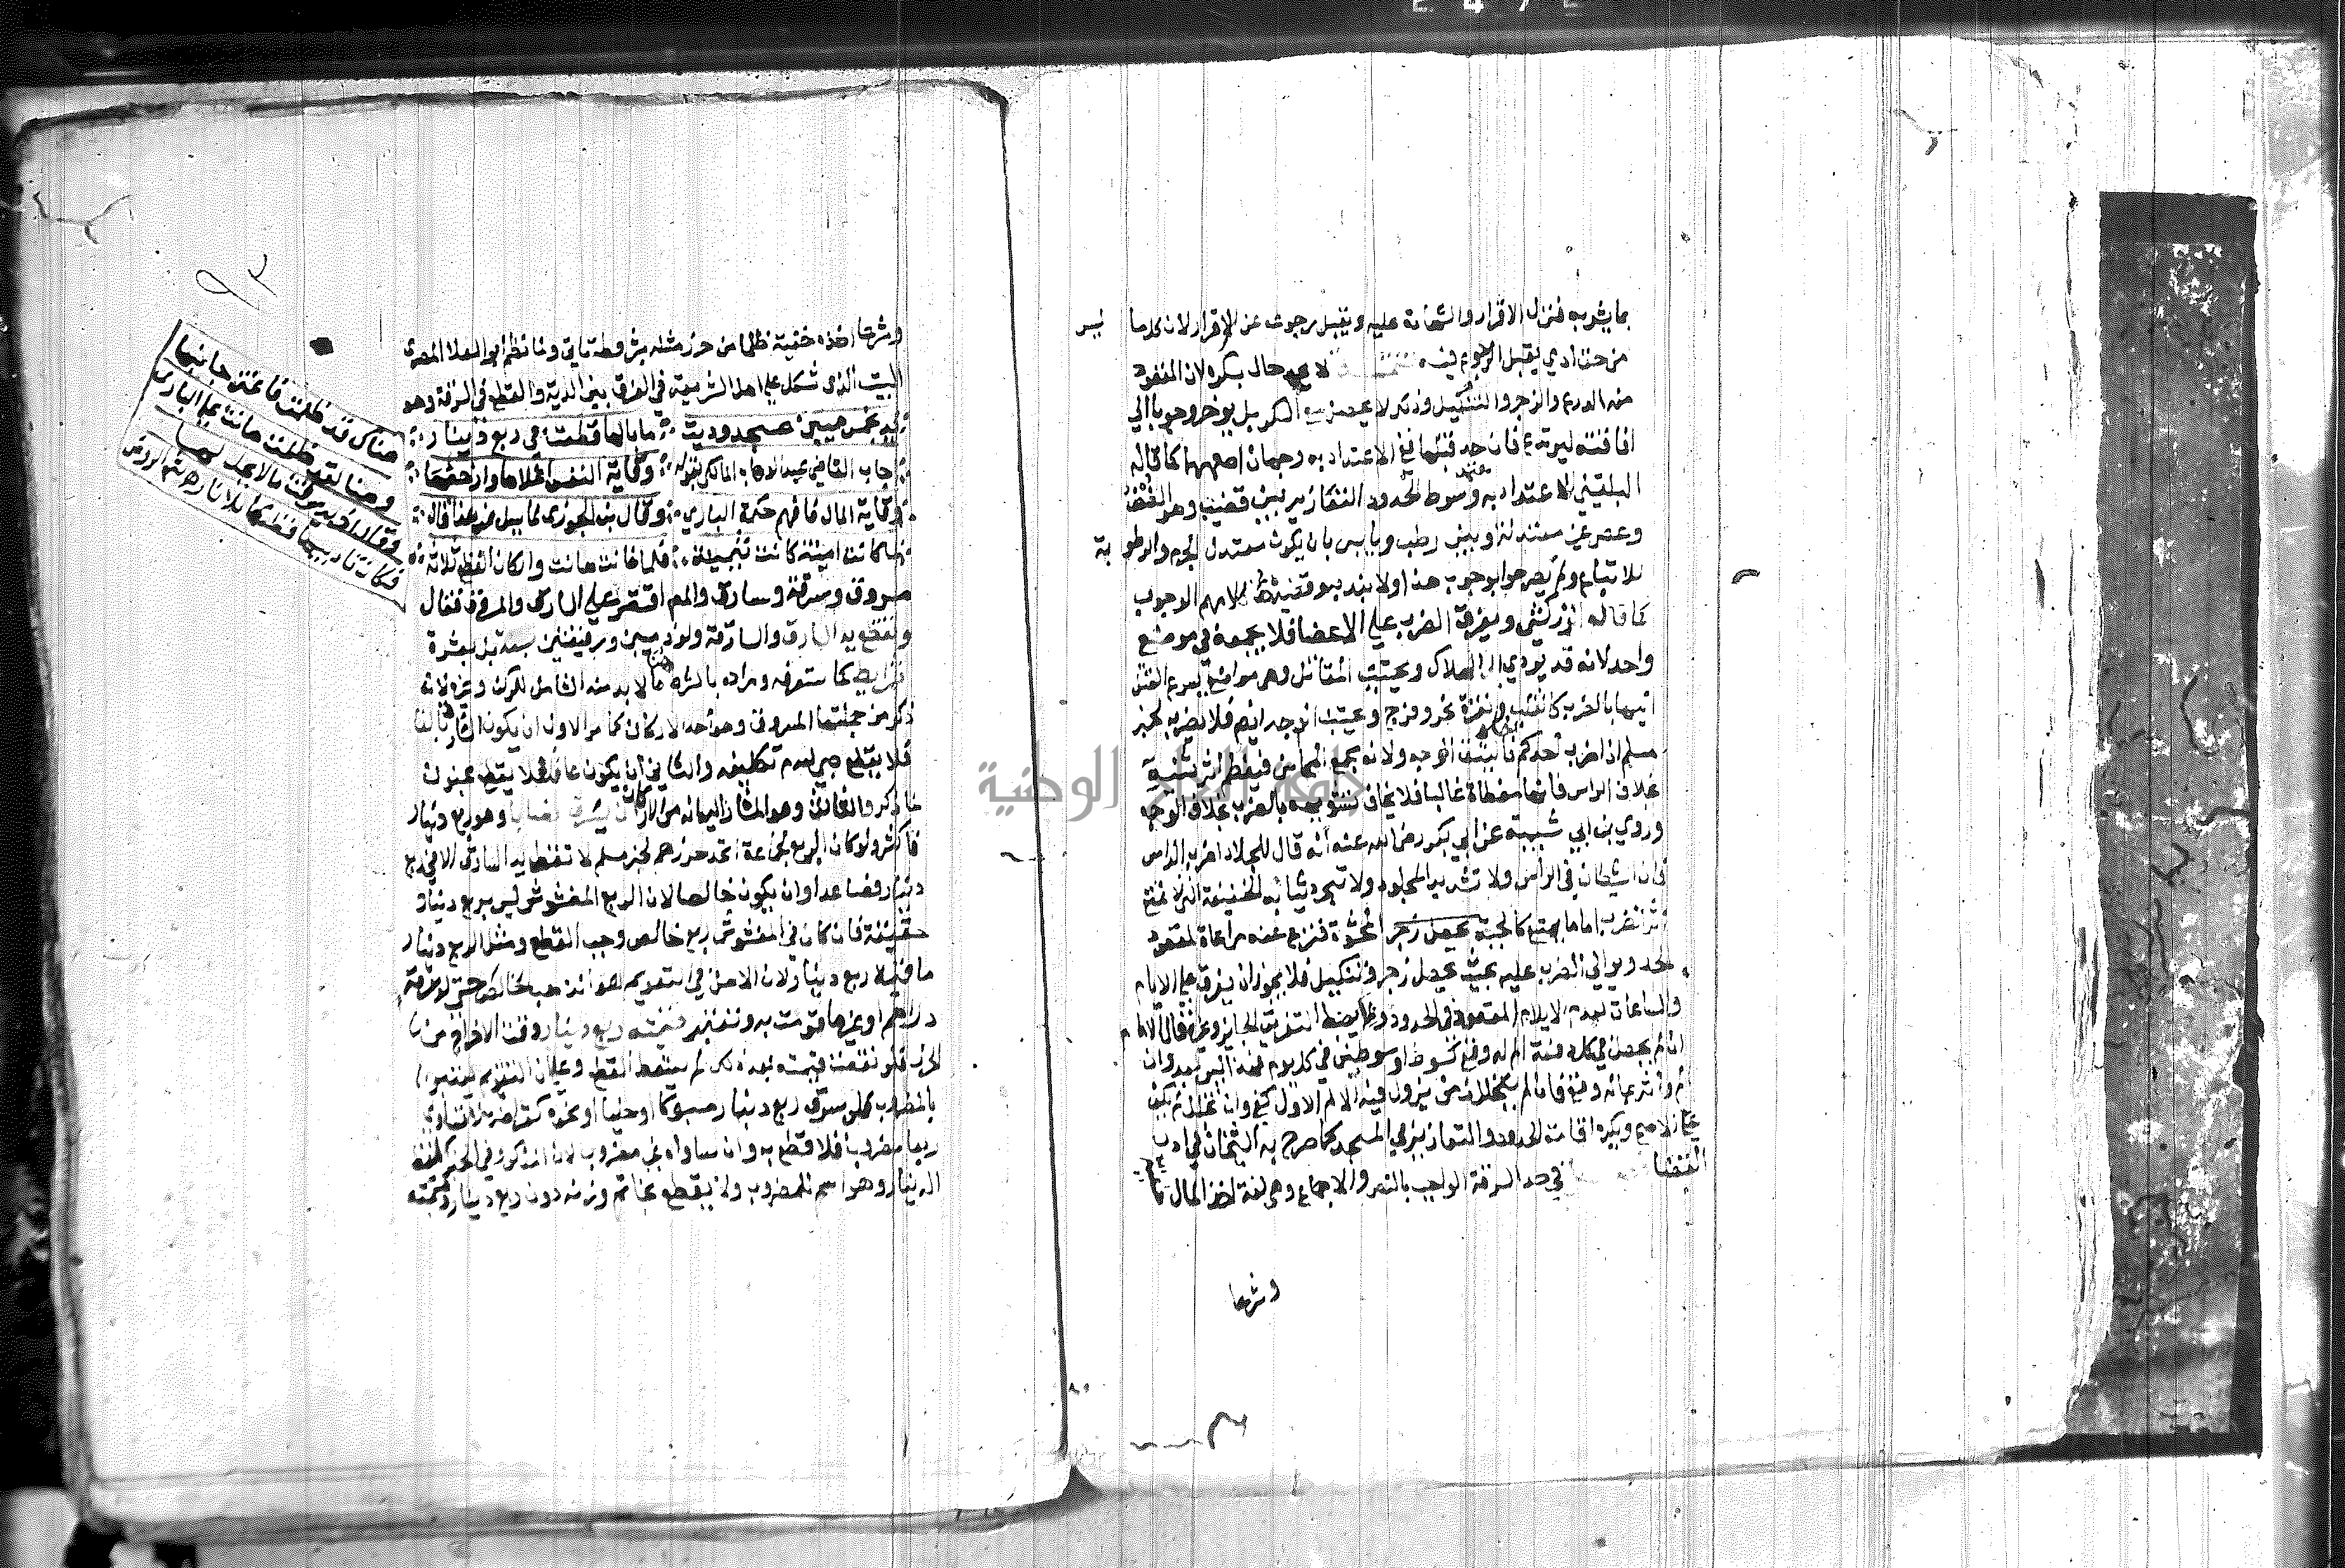 بما يشربه فنزل الاقرار والشهادة عليه ويقبل رجوعه عن الاقرار لان كلما ليس
من حق ادمي يقبل الرجوع فيه لا يحد حال سكره لان المقصود
منه الردع والزجر والتنكيل وذلك لا يحصل مع السكر بل يؤخر وجوبا الي
افاقته ليرتدع فان حد قبلها ففي الاعتداد به وجهان اصحهما كما قاله
البلقيني الاعتداد به وسوط الحدود او التعازير بين قضيب وهو الغصن
وعصى غير معتدلة وبين رطب ويابس بان يكون معتدل الجرم والرطوبة
للاتباع ولم يصرحوا بوجوب هذا ولا بندبه وقضية كلامهم الوجوب
كما قاله الزركشي ويفرق الضرب علي الاعضا فلا يجمعه في موضع
واحد لانه قد يودي الي الهلاك ويجتنب المقاتل وهي مواضع يسرع القتل
اليها بالضرب كقلب وثغرة نحر وفرج ويجتنب الوجه ايضا فلا يضربه لخبر
مسلم اذا ضرب احدكم فليتق الوجه ولانه مجمع المحاسن فيعظم اثر شينه
بخلاف الراس فانها مغطاة غالبا فلا يخاف تشويهه بالضرب بخلاف الوجه
وروي بن ابي شيبة عن ابي بكر رضي الله عنه أنه قال للجلاد اضرب الراس
فان الشيطان في الراس ولا تشد يد المجلود ولا تجرد ثيابه الخفيفة التي لا تمنع
اثر الضرب اما ما يمنع كالجبة المحشوة فتنزع عنه مراعاة لمقصود
الحد ويوالي الضرب عليه بحيث يحصل زجر وتنكيل فلا يجوز ان يفرق علي الايام
والساعات لعدم الايلام المقصود في الحدود وضابط التفريق الجايز وغيره قال الامام
ان لم يحصل في كل دفعة الم له وقع كسوط او سوطين في كل يوم فهذا ليس بحد وان
الم واثر بما له وقع فان لم يتخلل زمن يزول فيه الالم الاول كفي وان تخلل لم يكف
علي الاصح ويكره اقامة الحدود والتعازير في المسجد كما صرح به الشيخان في ادب
القضا في حد السرقة الواجب بالنص والاجماع وهي لغة اخذ المال خفية
وشرعا
٩٣
وشرعا اخذه خفية ظلما من حرز مثله بشروط تاتي ولما نظم ابو العلا المعري
البيت الذي شكك علي اهل الشريعة في الفرق بين الدية والقطع في السرقة وهو
يد بخمس ميين عسجد وديت ما بالها قطعت في ربع دينار
اجاب القاضي عبد الوهاب المالكي بقوله وقاية النفس اغلاها وارخصها
وقاية المال فافهم حكمة الباري وقال بن الجوزي لما سيل عن هذا قال
لما كانت امينة كانت ثمينة فلما خانت هانت واركان القطع ثلاثة
مسروق وسرقة وسارق والمصنف اقتصر علي السارق والمسروق فقال
وتقطع يد السارق والسارقة ولو ذميين ورقيقين بستة بل بعشرة
شرايط كما ستعرفه ومراده بالشرط هنا ما لا بد منه الشامل للركن وغيره لانه
ذكر من جملتها المسروق وهو احد الاركان كما مر الاول ان يكون السارق بالغا
فلا يقطع صبي لعدم تكليفه والثاني ان يكون عاقلا فلا يقطع مجنون
لما ذكر والثالث وهو ان يسرق نصابا وهو ربع دينار
فاكثر ولو كان الربع لجماعة اتحد حرزهم لخبر مسلم لا تقطع يد السارق الا في ربع
دينار فصاعدا وان يكون خالصا لان الربع المغشوش ليس بربع دينار
حقيقة فان كان في المغشوش ربع خالص وجب القطع ومثل الربع دينار
ما قيمته ربع دينار لان الاصل في التقويم هو الذهب الخالص حتي لو سرق
دراهم او غيرها قومت به وتعتبر قيمته ربع دينار وقت الاخراج من
الحرز فلو نقصت قيمته بعد ذلك لم يسقط القطع وعلي ان التقويم يعتبر
بالمضروب فلو سرق ربع دينار مسبوكا او حليا او نحوه كقراضة لا تساوي
ربعا مضروبا فلا قطع به وان ساواه غير مضروب لان المذكور في الخبر لفظ
الدينار وهو اسم للمضروب ولا يقطع بخاتم وزنه دون ربع دينار وقيمته
هناك قد ظلمت فاعتز جانبها
وهنا لقد ظلمت هانت علي الباري